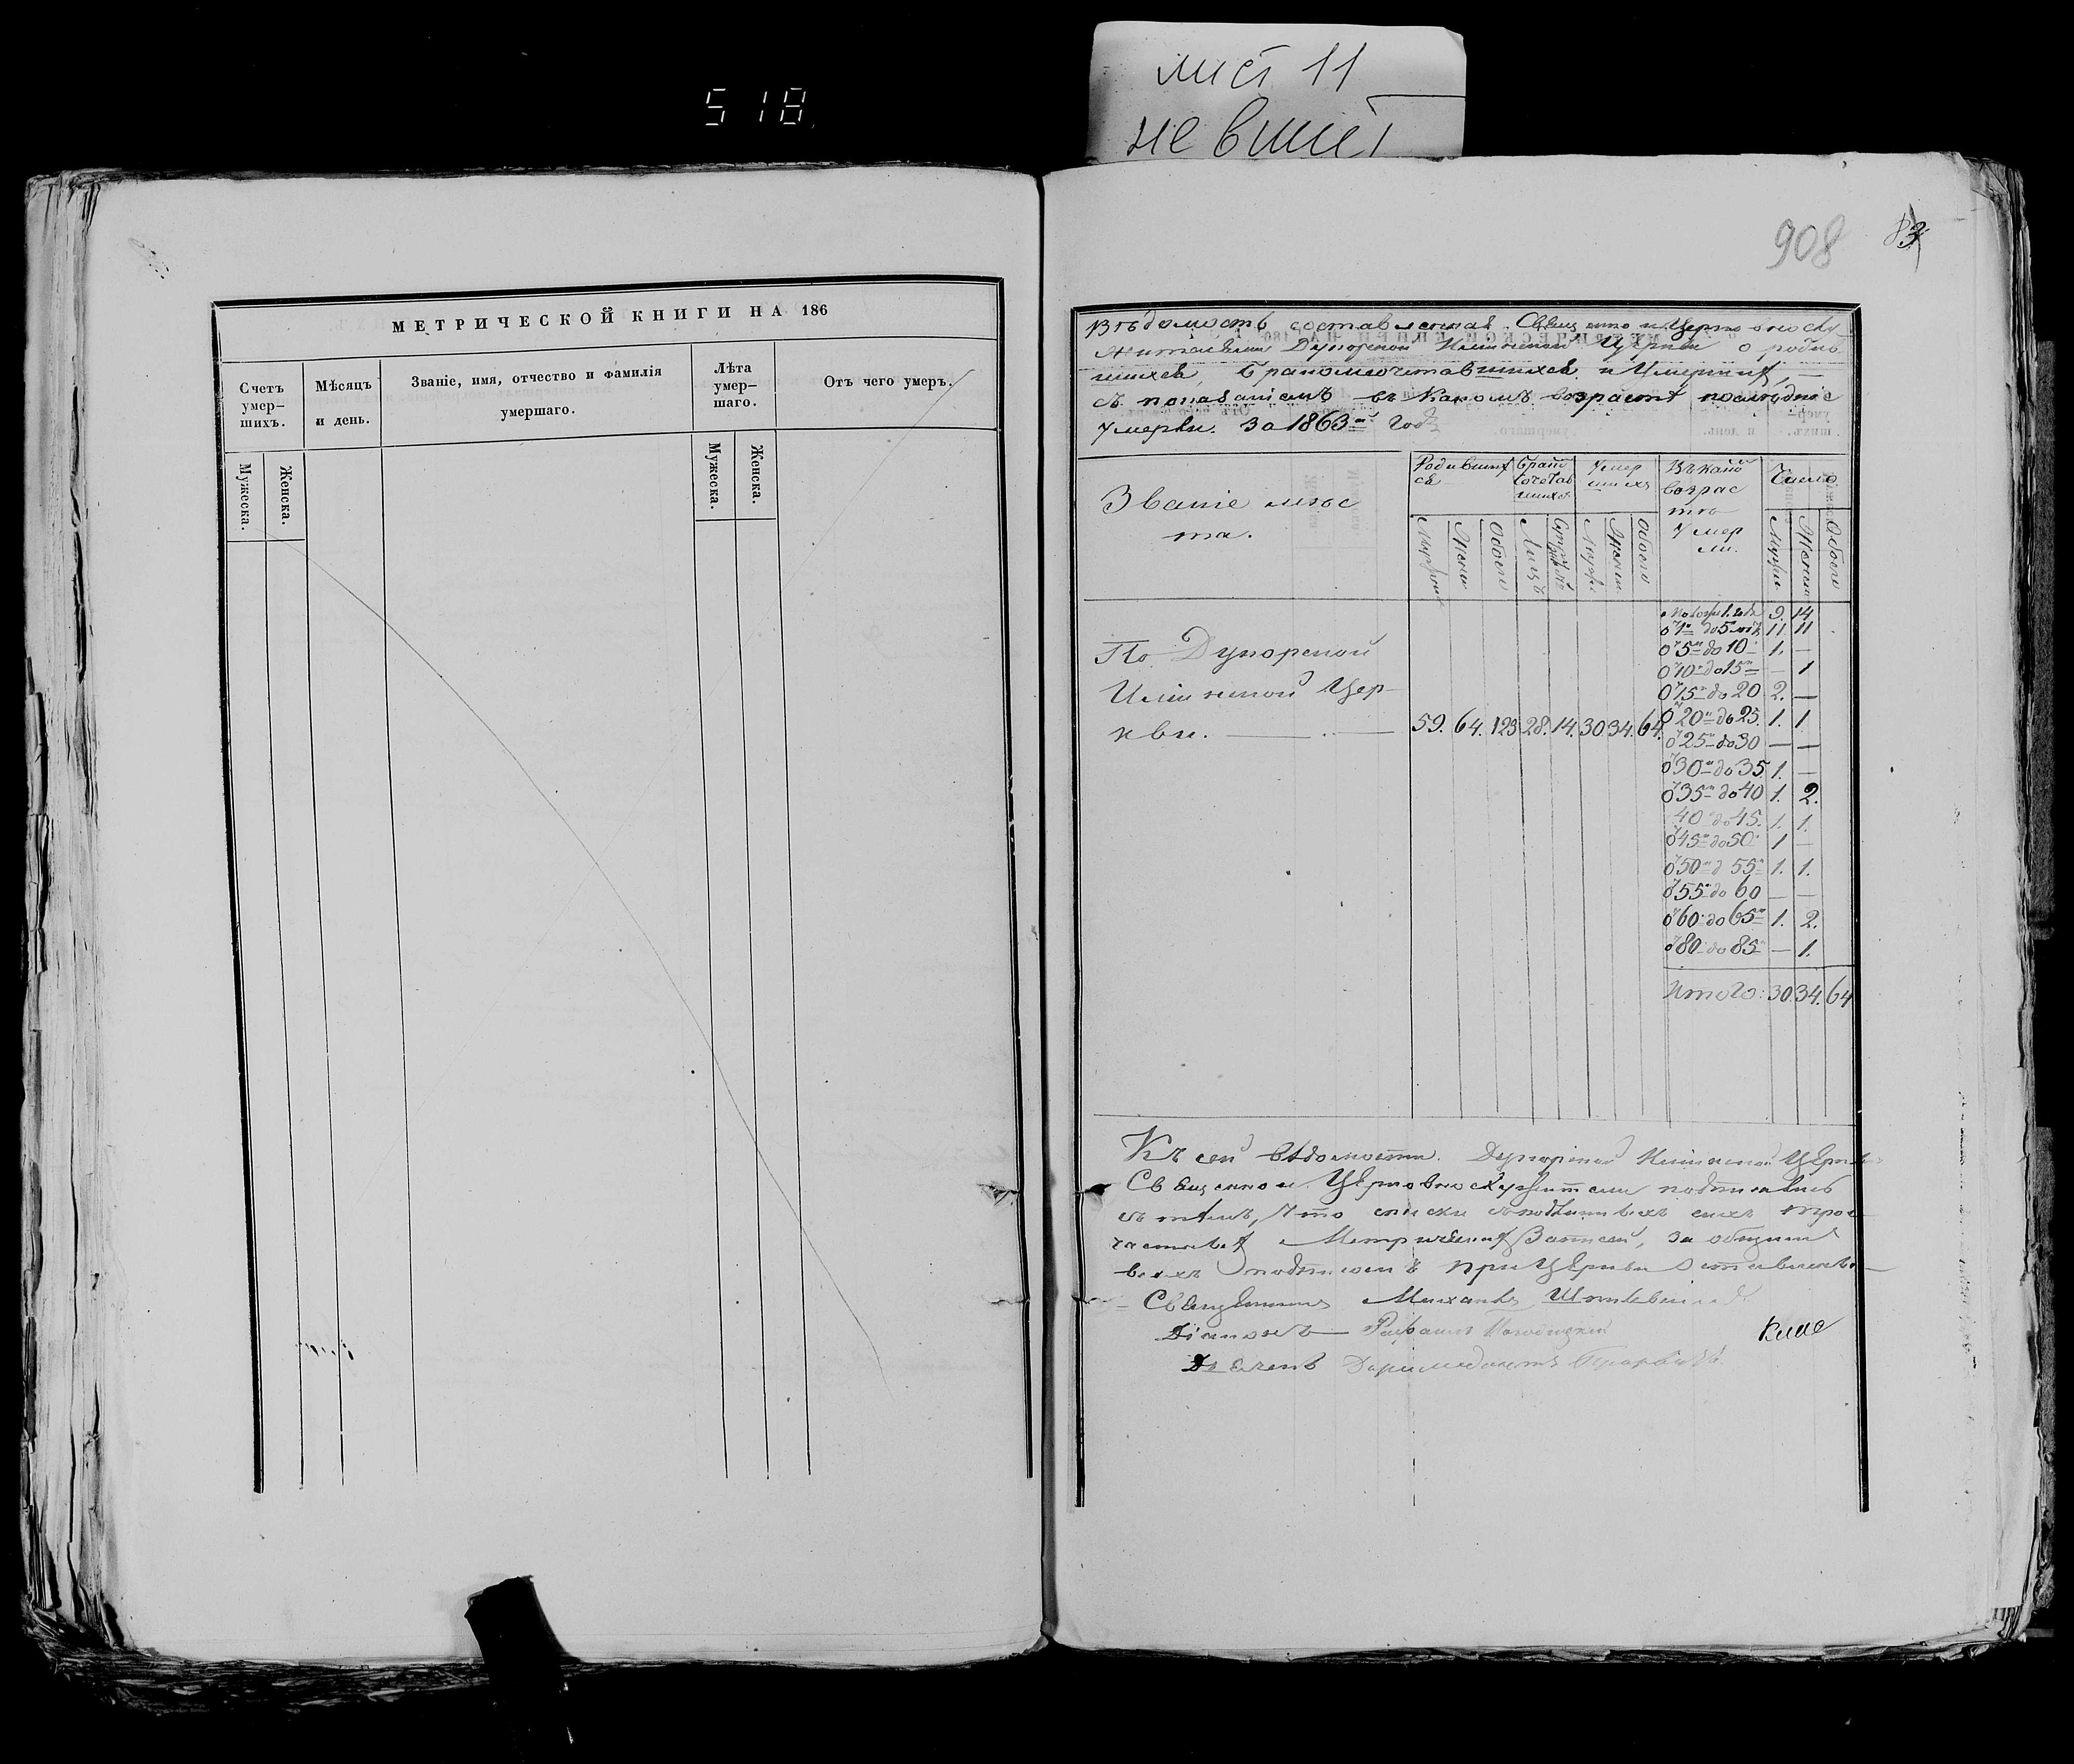 518
лист 11
не вшит
908
83
МЕТРИЧЕСКОЙ КНИГИ НА 186
Счетъ умер-
шихъ.
Мѣсяцъ
и день.
Званіе, имя, отчество и фамилія
умершаго.
Лѣта
умер-
шаго.
Отъ чего умеръ.
Мужеска.
Женска.
Мужеска.
Женска.
Вѣдомость составленная Священно и Церковнослу-
жителями Илiинской Церкви о родив-
шихся, Бракомъсочетавшихся и Умершихъ,
съ показаніемъ въ какомъ возрастѣ послѣдніе
умерли. За 1863й Годъ
Званіе мѣс
та.
Родивших
ся
Брако
сочетав
шихся
Умер
шихъ
Въ какомъ
возрас
тѣ
Умер
ли.
Число
Женск
Обоего
Лицъ
Мужс
Женск
Обоего
Женска
Обоего
По
Илiинской Цер-
кви. 59. 64. 123 28. 14. 30 34. 64.
9. 14
от 1го до 5 лѣтъ 11 11
от 5 до 10 1. —
от 10 до 15 — 1
от 15 до 20 2. —
от 20 до 25. 1. 1
от 25 до 30 — —
от 30 до 35 1. —
от 35 до 40 1. 2.
40 до 45. 1. 1.
от 45 до 50 1 —
от 50 до 55 1. 1.
от 55 до 60 — —
от 60 до 65 1. 2.
от 80 до 85 — 1.
Итого: 30. 34. 64
Къ сей вѣдомости Илiинской Церкви
Священно и Церковнослужители подписались
съ тѣмъ, что списки съ подлинныхъ сихъ трех
частныхъ Метрическихъ Записей, за общимъ
всѣхъ подписомъ при Церкви оставлены
Священникъ Михаилъ
Діаконъ
Дьячекъ